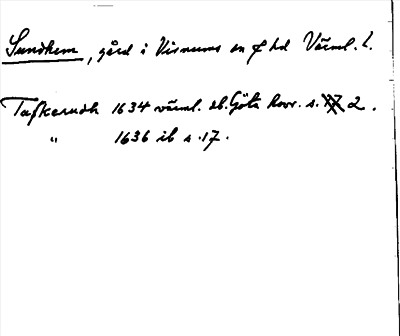 Sundhem, gård i Visnums sn o hd Värml. l.
Tafkerudh 1634 värml. dl. Göta hovr. s. 2.
" 1636 ib s. 17.